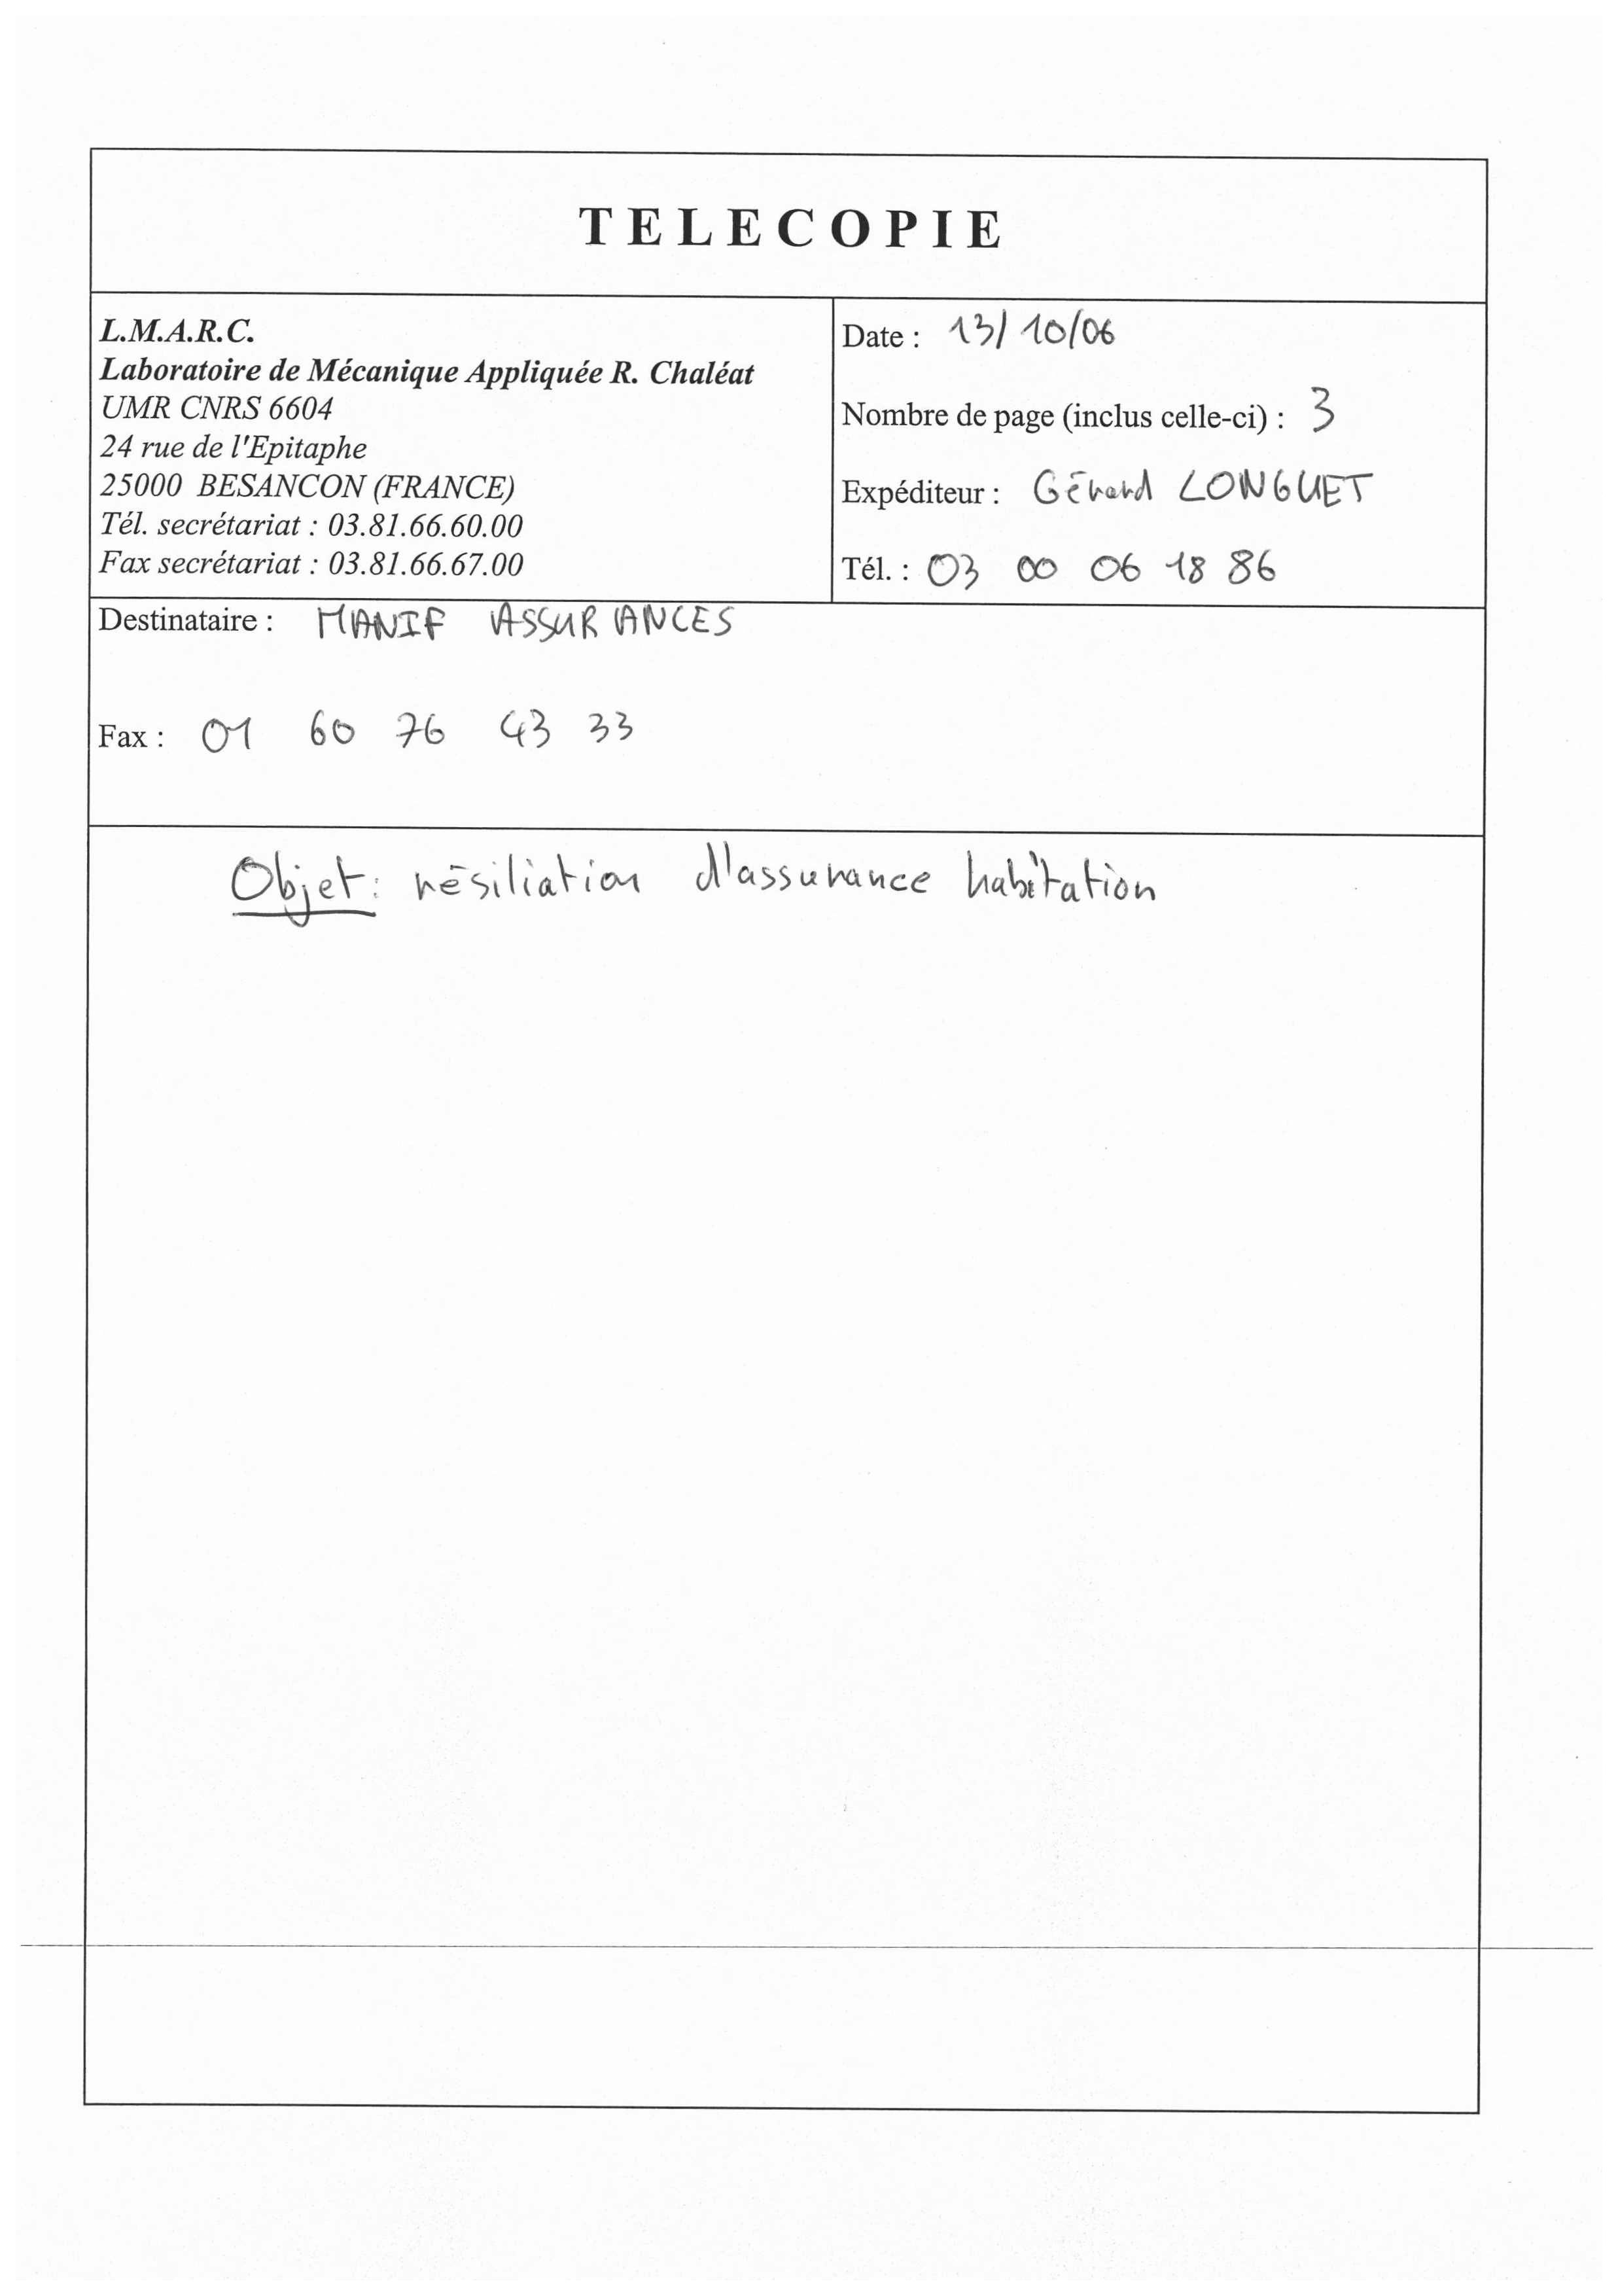 TELECOPIE
L.M.A.R.C.
Laboratoire de Mécanique Appliquée R. Chaléat
UMR CNRS 6604
24 rue de l'Epitaphe
25000 BESANCON (FRANCE)
Tél. secrétariat : 03.81.66.60.00
Fax secrétariat : 03.81.66.67.00
Date : 13/10/06
Nombre de page (inclus celle-ci) : 3
Expéditeur : Gérard LONGUET
Tél. : 03 00 06 18 86
Destinataire : MANIF ASSURANCES
Fax : 01 60 76 43 33
Objet : résiliation d'assurance habitation